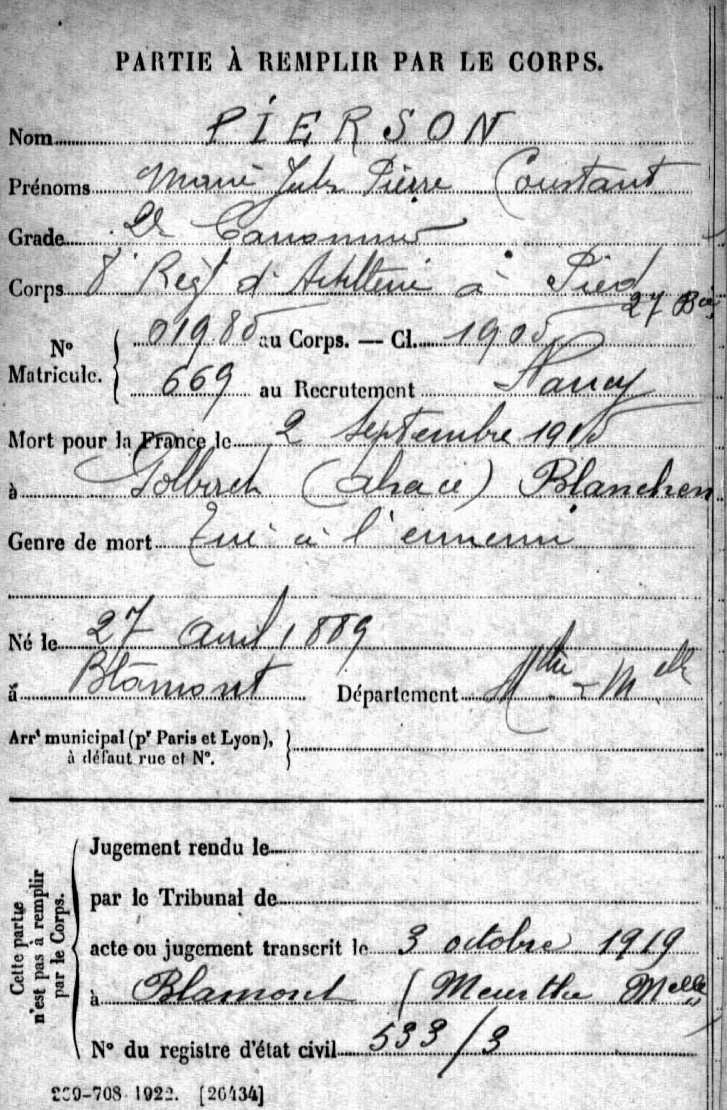 PARTIE À REMPLIR PAR LE CORPS.
Nom PIERSON
Prénoms Marie Jules Pierre Constant
Grade 2e Canonnier
Corps 8e Régt d'Artillerie à Pied
27 Bie
N° Matricule. { 01985 au Corps. — Cl. 1905
669 au Recrutement Nancy
Mort pour la France le 2 Septembre 1915
à (Alsace) Blanchen
Genre de mort Tué à l'ennemi
Né le 27 Avril 1889
à Blâmont Département Mthe - Melle
Arrt municipal (pr Paris et Lyon), }
à défaut rue et N°.
Cette partie n'est pas à remplir par le Corps.
Jugement rendu le
par le Tribunal de
acte ou jugement transcrit le 3 octobre 1919
à Blamont (Meurthe Melle
N° du registre d'état civil 533/3
269-708 1922. [26434]